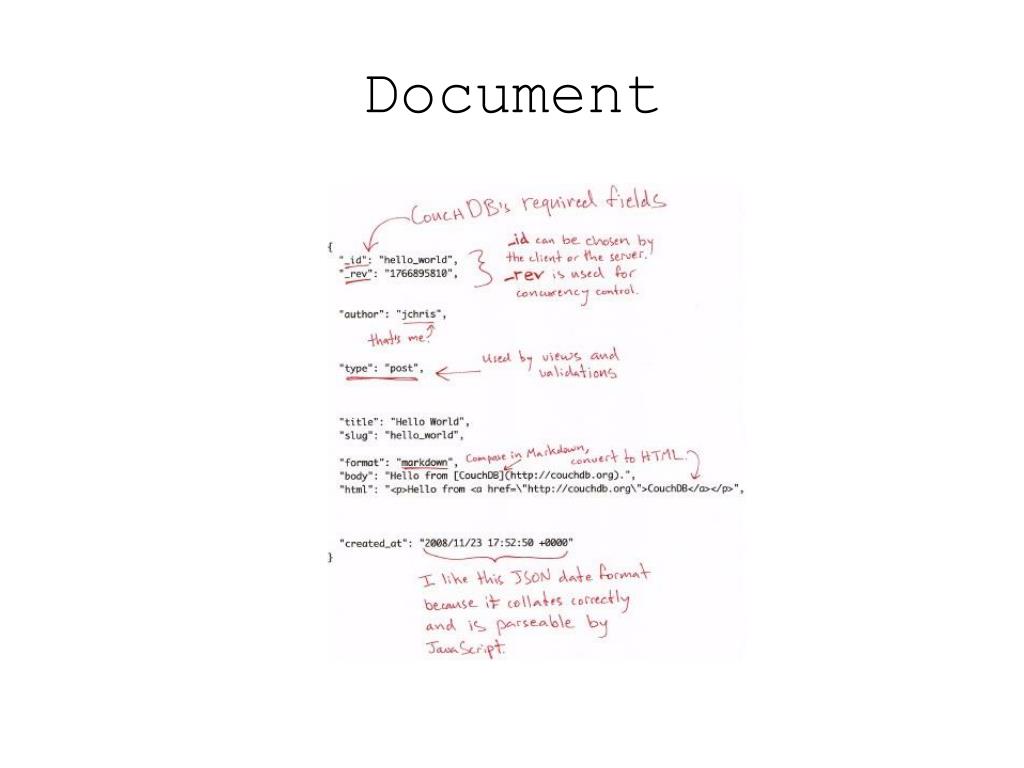 Document
CouchDB's required fields
{
"_id": "hello_world",
"_rev": "1766895810",
_id can be chosen by
the client or the server.
_rev is used for
concurrency control.
"author": "jchris",
that's me!
"type": "post",
Used by views and
validations
"title": "Hello World",
"slug": "hello_world",
"format": "markdown",
Compose in Markdown,
convert to HTML.
"body": "Hello from [CouchDB](http://couchdb.org).",
"html": "<p>Hello from <a href=\"http://couchdb.org\">CouchDB</a></p>",
"created_at": "2008/11/23 17:52:50 +0000"
}
I like this JSON date format
because it collates correctly
and is parseable by
JavaScript.